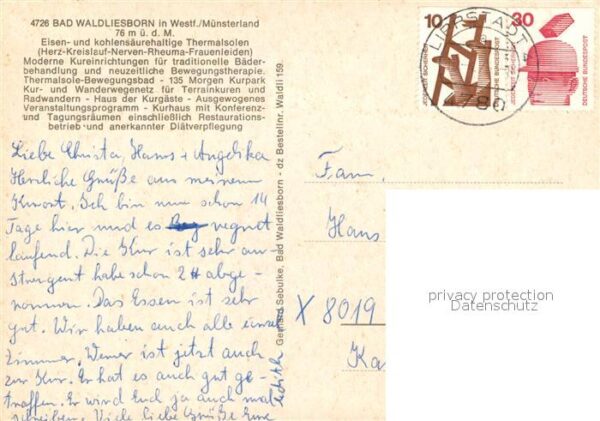 4726 BAD WALDLIESBORN in Westf./Münsterland
76 m ü. d. M.
Eisen- und kohlensäurehaltige Thermalsolen
(Herz-Kreislauf-Nerven-Rheuma-Frauenleiden)
Moderne Kureinrichtungen für traditionelle Bäder-
behandlung und neuzeitliche Bewegungstherapie.
Thermalsole-Bewegungsbad - 135 Morgen Kurpark
Kur- und Wanderwegenetz für Terrainkuren und
Radwandern - Haus der Kurgäste - Ausgewogenes
Veranstaltungsprogramm - Kurhaus mit Konferenz-
und Tagungsräumen einschließlich Restaurations-
betrieb und anerkannter Diätverpflegung
Liebe Christa, Hanns + Angelika
Herzliche Grüße aus meinem
Kurort. Ich bin nun schon 14
Tage hier und es regnet
laufend. Die Kur ist sehr an-
strengent habe schon 2 abge-
nommen. Das Essen ist sehr
gut. Wir haben auch alle einzel
Zimmer. Werner ist jetzt auch
zur Kur. Er hat es auch gut ge-
troffen. Er wird Euch ja auch mal
schreiben. Viele liebe Grüße Eure
Gerhard Sebulke, Bad Waldliesborn - dz Bestellnr. Waldli 159
10
30
DEUTSCHE BUNDESPOST
LIPPSTADT
4780
Fam.
Hans
X 8019
Ka
privacy protection
Datenschutz